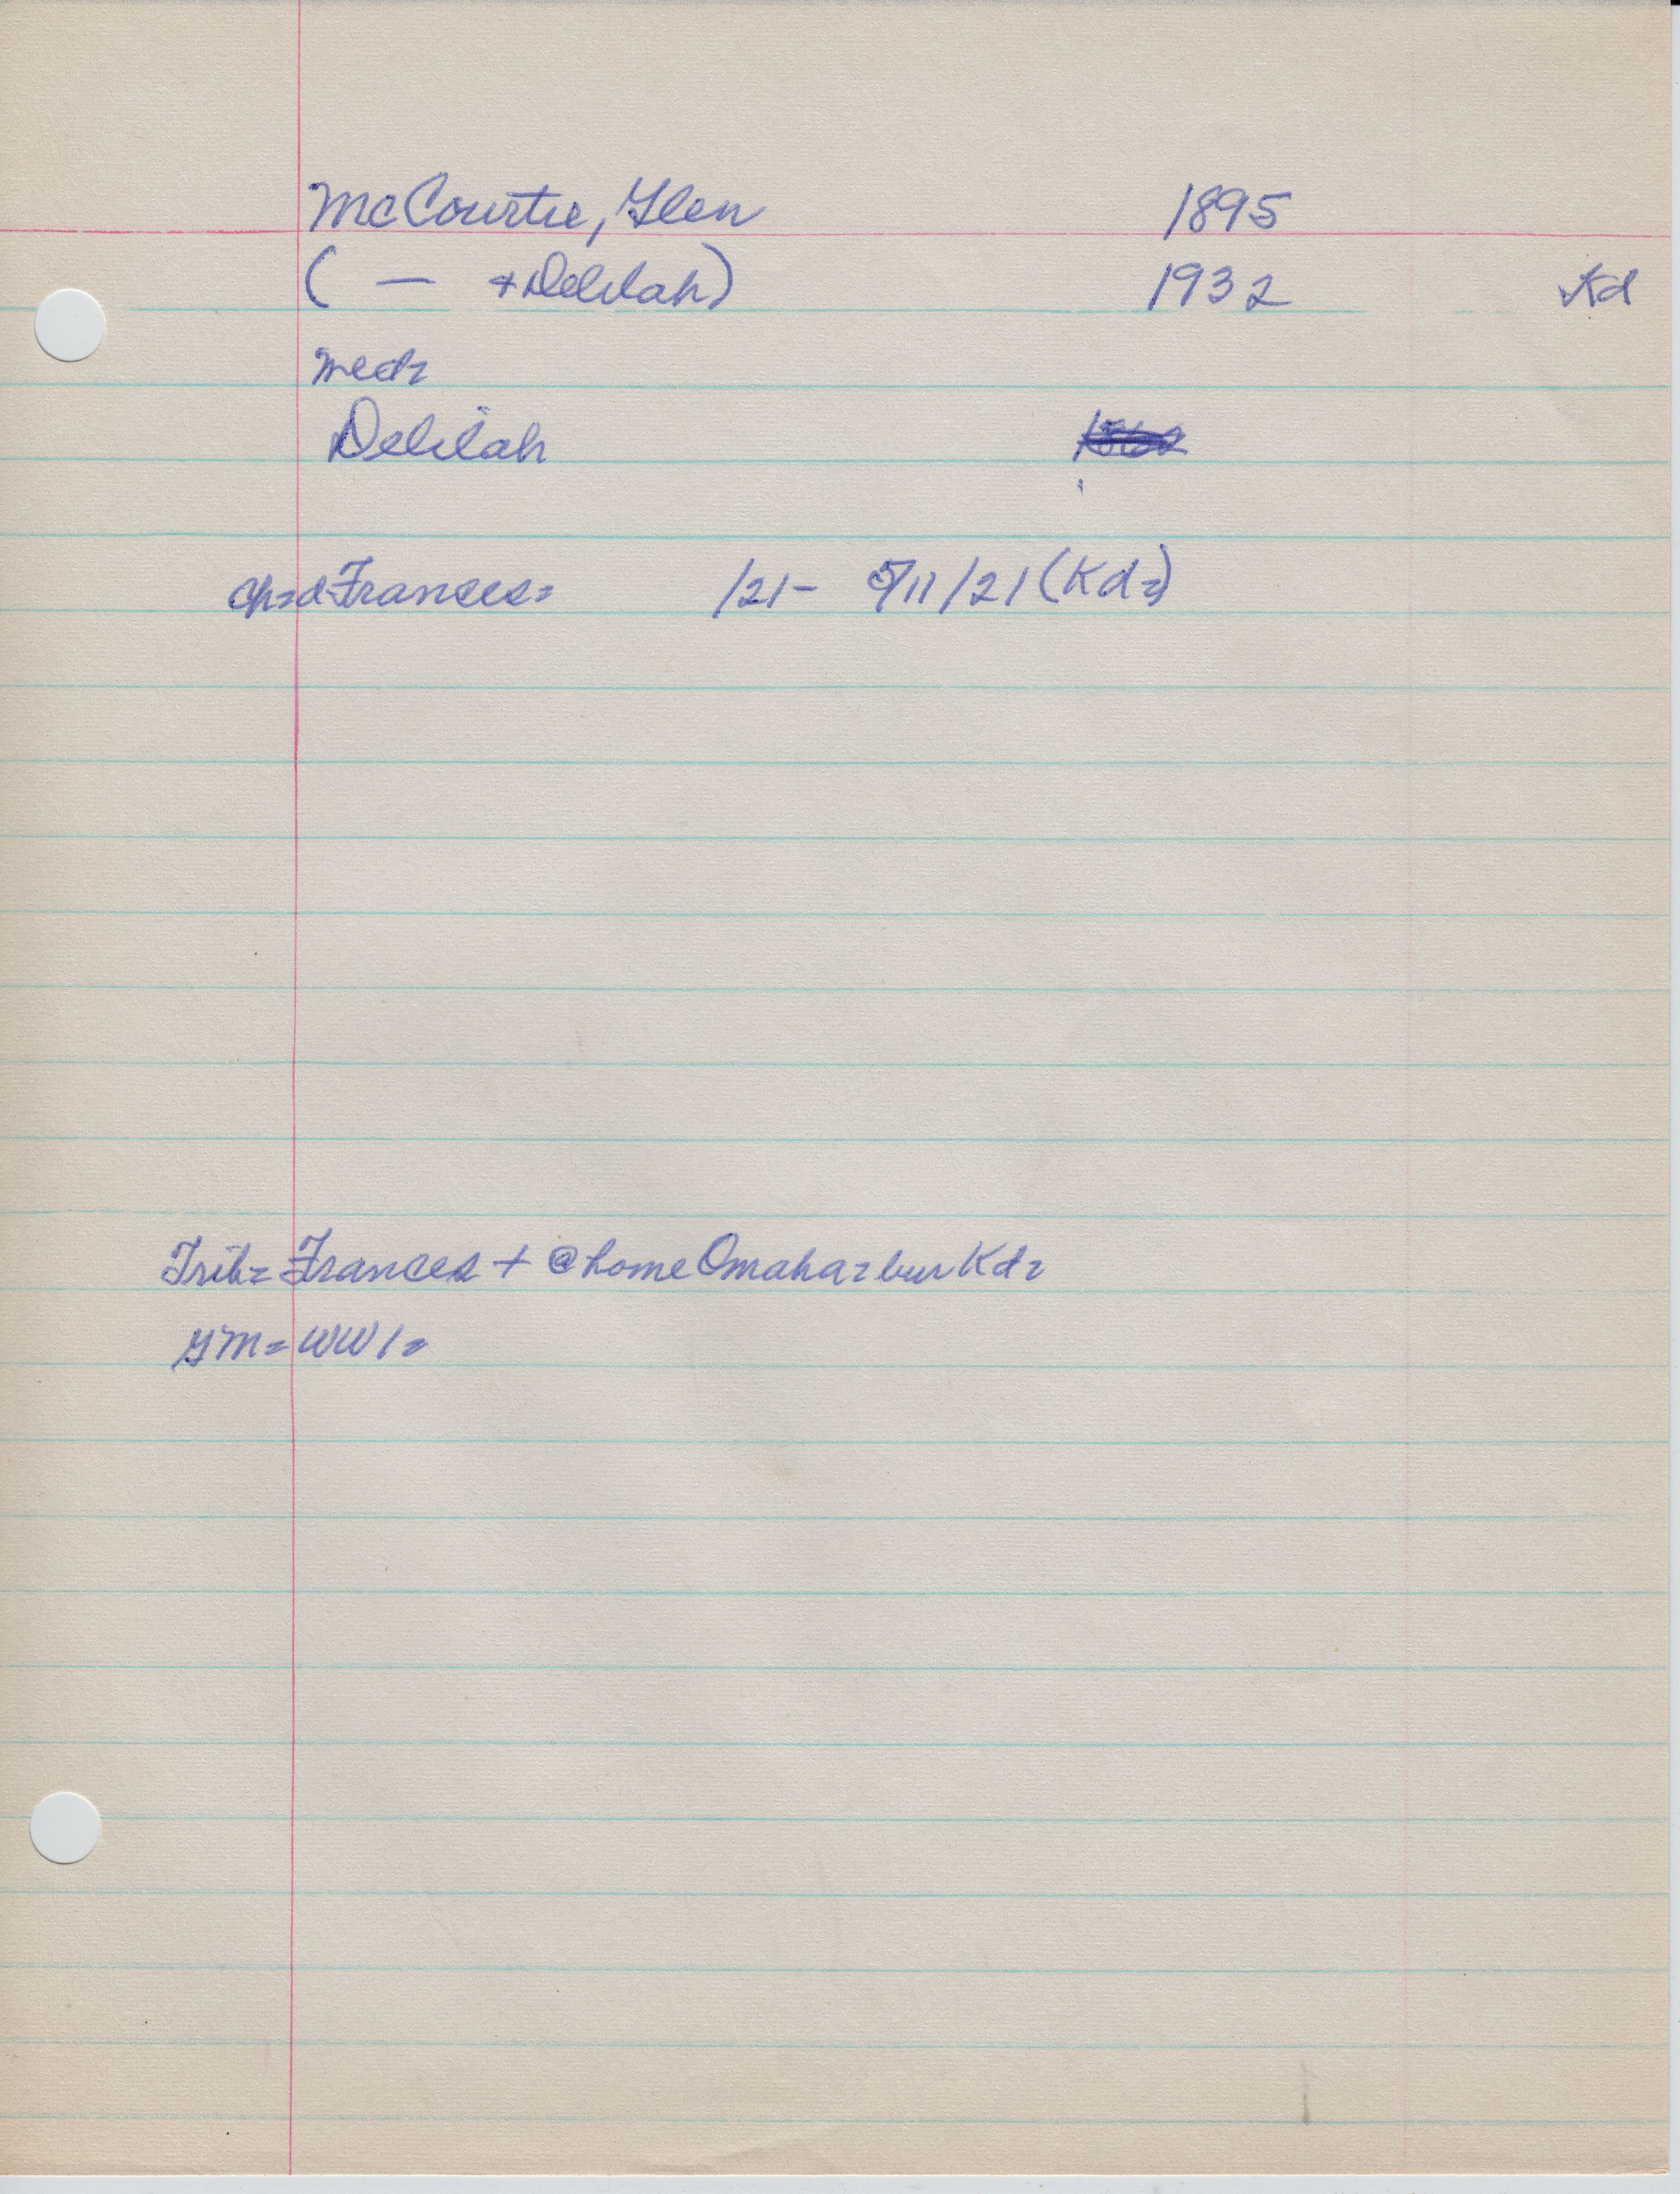 McCourtie, Glen 1895
( — + Delilah) 1932 Kd
med=
Delilah
ch=d Frances= /21- 5/11/21 (Kd=)
Trib= Frances + @ home Omaha = bur Kd=
GM= WW1=